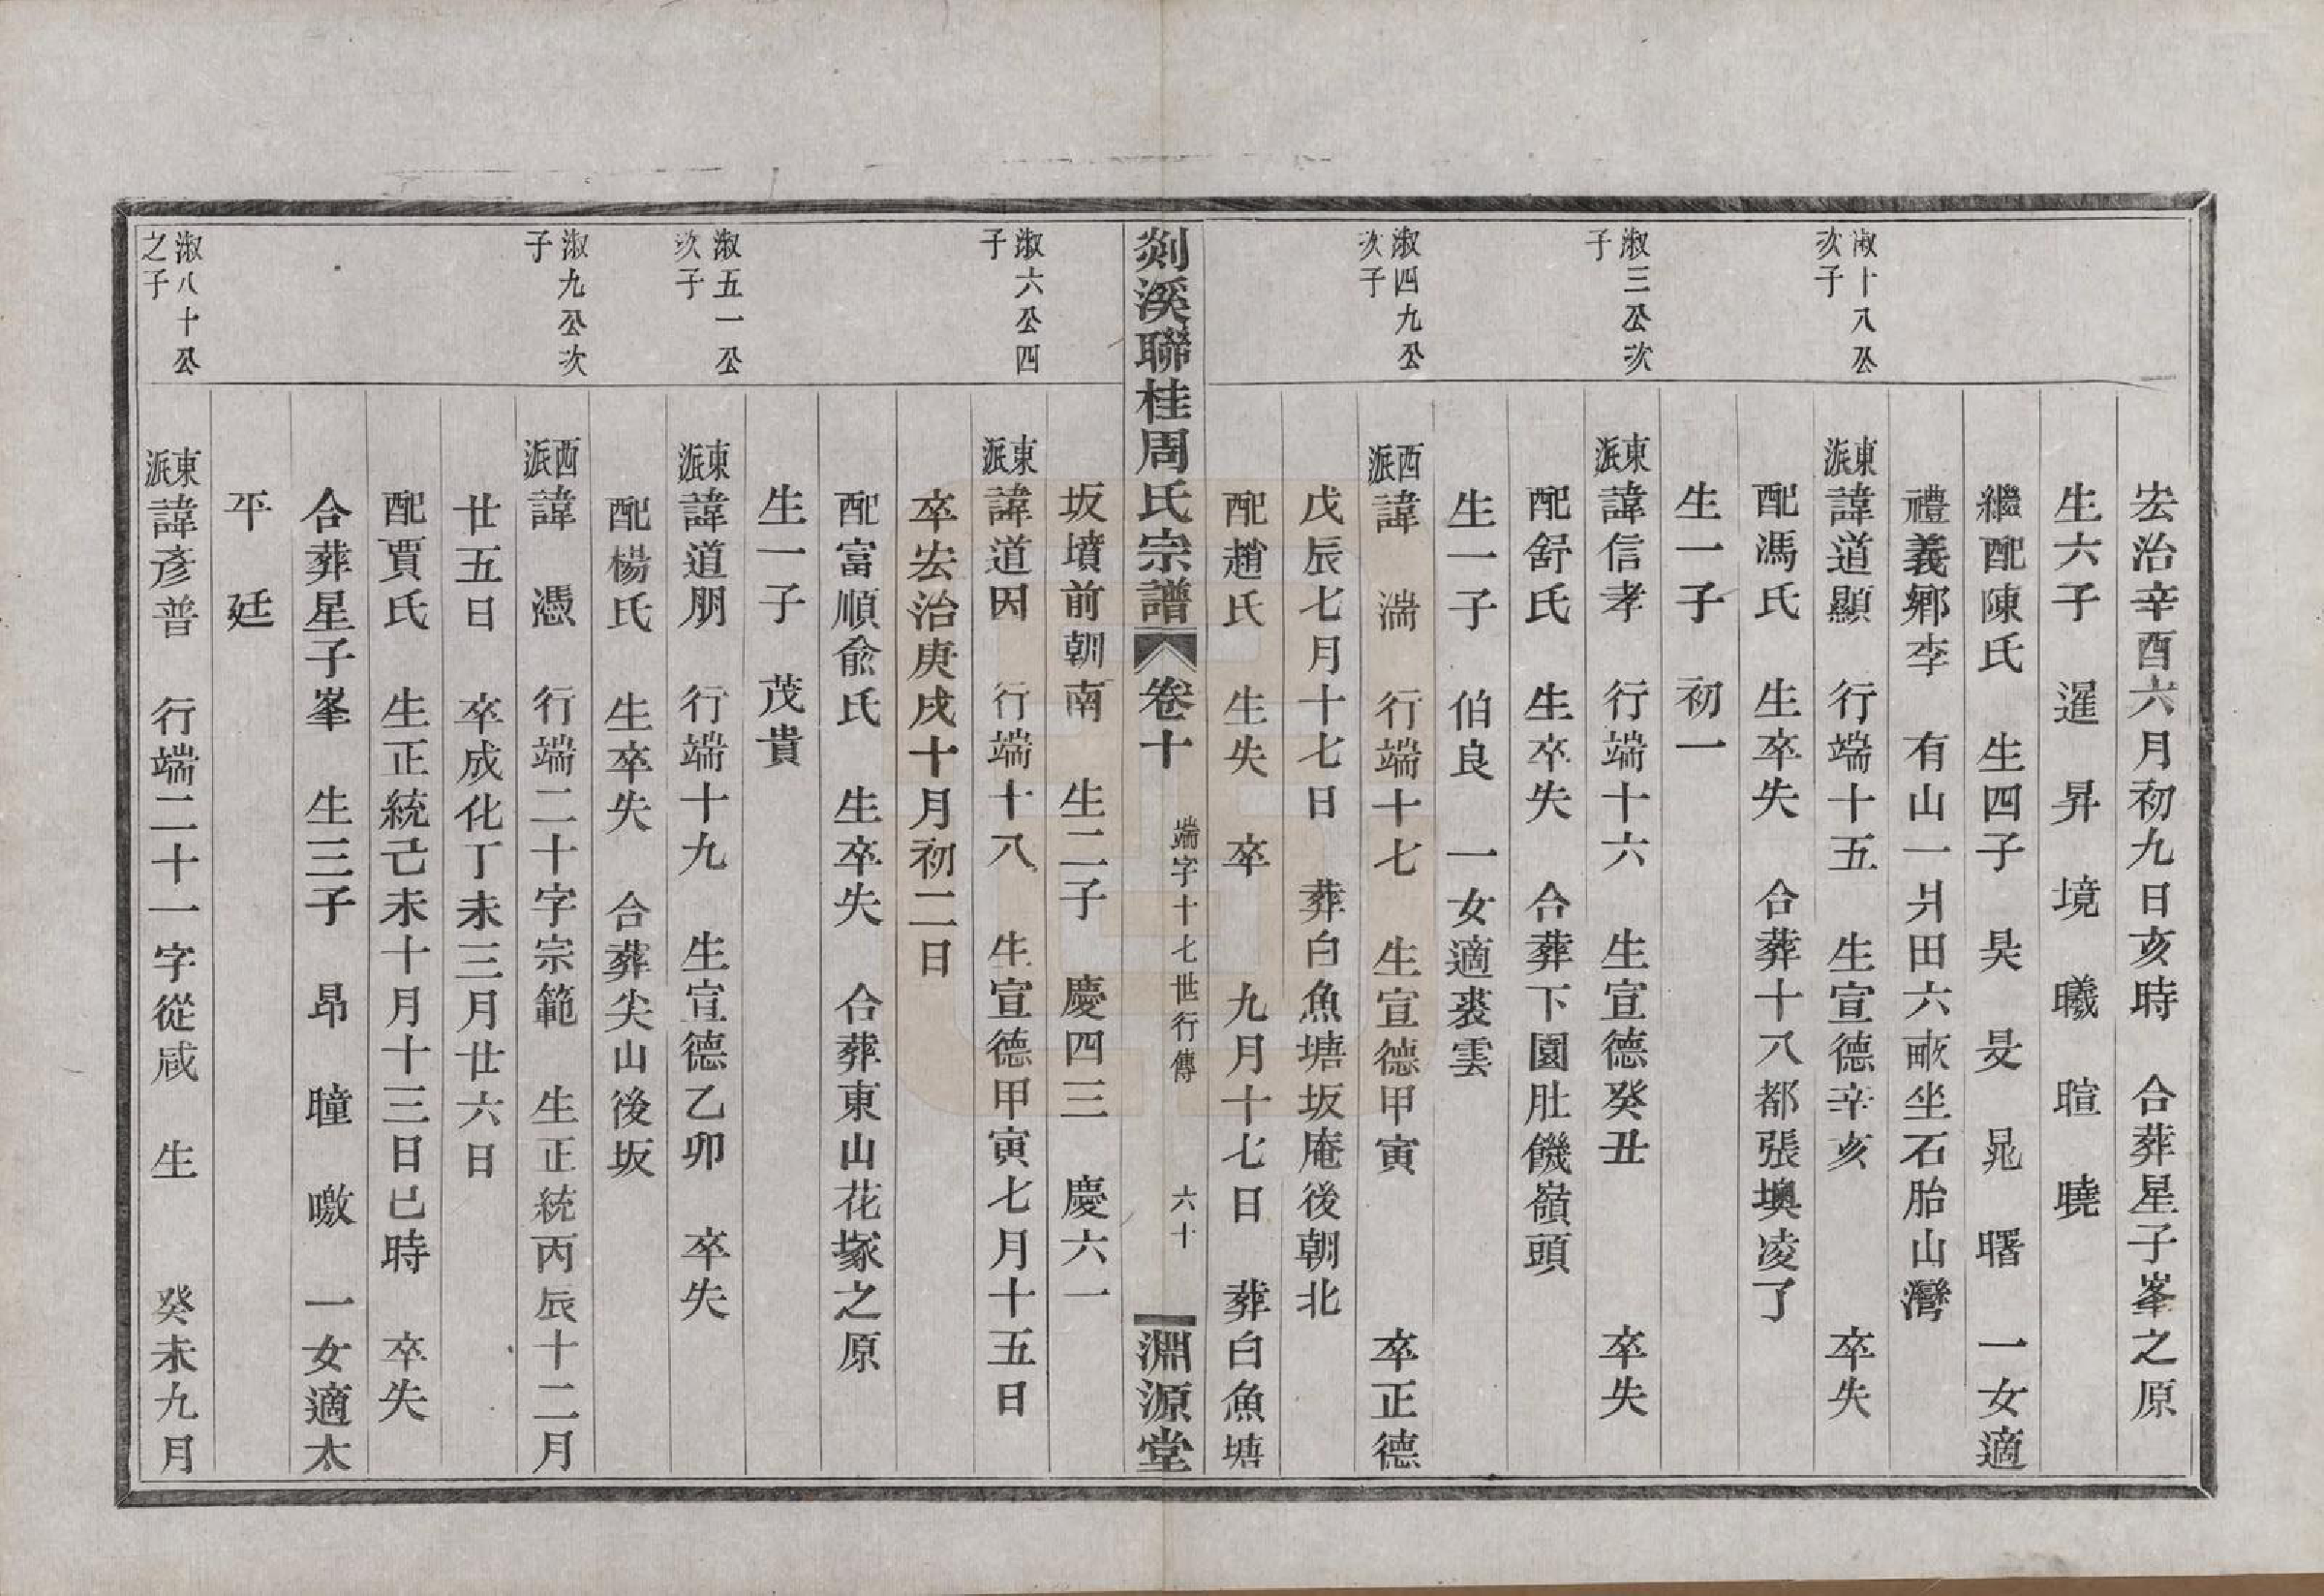 宏治辛酉六月初九日亥時　合葬星子峯之原
生六子　暹　昇　境　曦　暄　曉
繼配陳氏　生四子　昊　旻　晁　曙　一女適
禮義鄉李　有山一爿田六畝坐石胎山灣
淑十八公
次子
東派諱道顯　行端十五　生宣德辛亥　卒失
配馮氏　生卒失　合葬十八都張墺凌了
生一子　初一
淑三公次
子
東派諱信孝　行端十六　生宣德癸丑　卒失
配舒氏　生卒失　合葬下園肚饑嶺頭
生一子　伯良　一女適裘雲
淑四九公
次子
西派諱　湍　行端十七　生宣德甲寅　卒正德
戊辰七月十七日　葬白魚塘坂庵後朝北
配趙氏　生失　卒　九月十七日　葬白魚塘
剡溪聯桂周氏宗譜　卷十　端字十七世行傳　六十　淵源堂
坂墳前朝南　生二子　慶四三　慶六一
淑六公四
子
東派諱道因　行端十八　生宣德甲寅七月十五日
卒宏治庚戌十月初二日
配富順俞氏　生卒失　合葬東山花塚之原
生一子　茂貴
淑五一公
次子
東派諱道朋　行端十九　生宣德乙卯　卒失
配楊氏　生卒失　合葬尖山後坂
淑九公次
子
西派諱　憑　行端二十字宗範　生正統丙辰十二月
廿五日　卒成化丁未三月廿六日
配賈氏　生正統己未十月十三日巳時　卒失
合葬星子峯　生三子　昂　曈　暾　一女適太
平　廷
淑八十公
之子
東派諱彥普　行端二十一字從咸　生　癸未九月